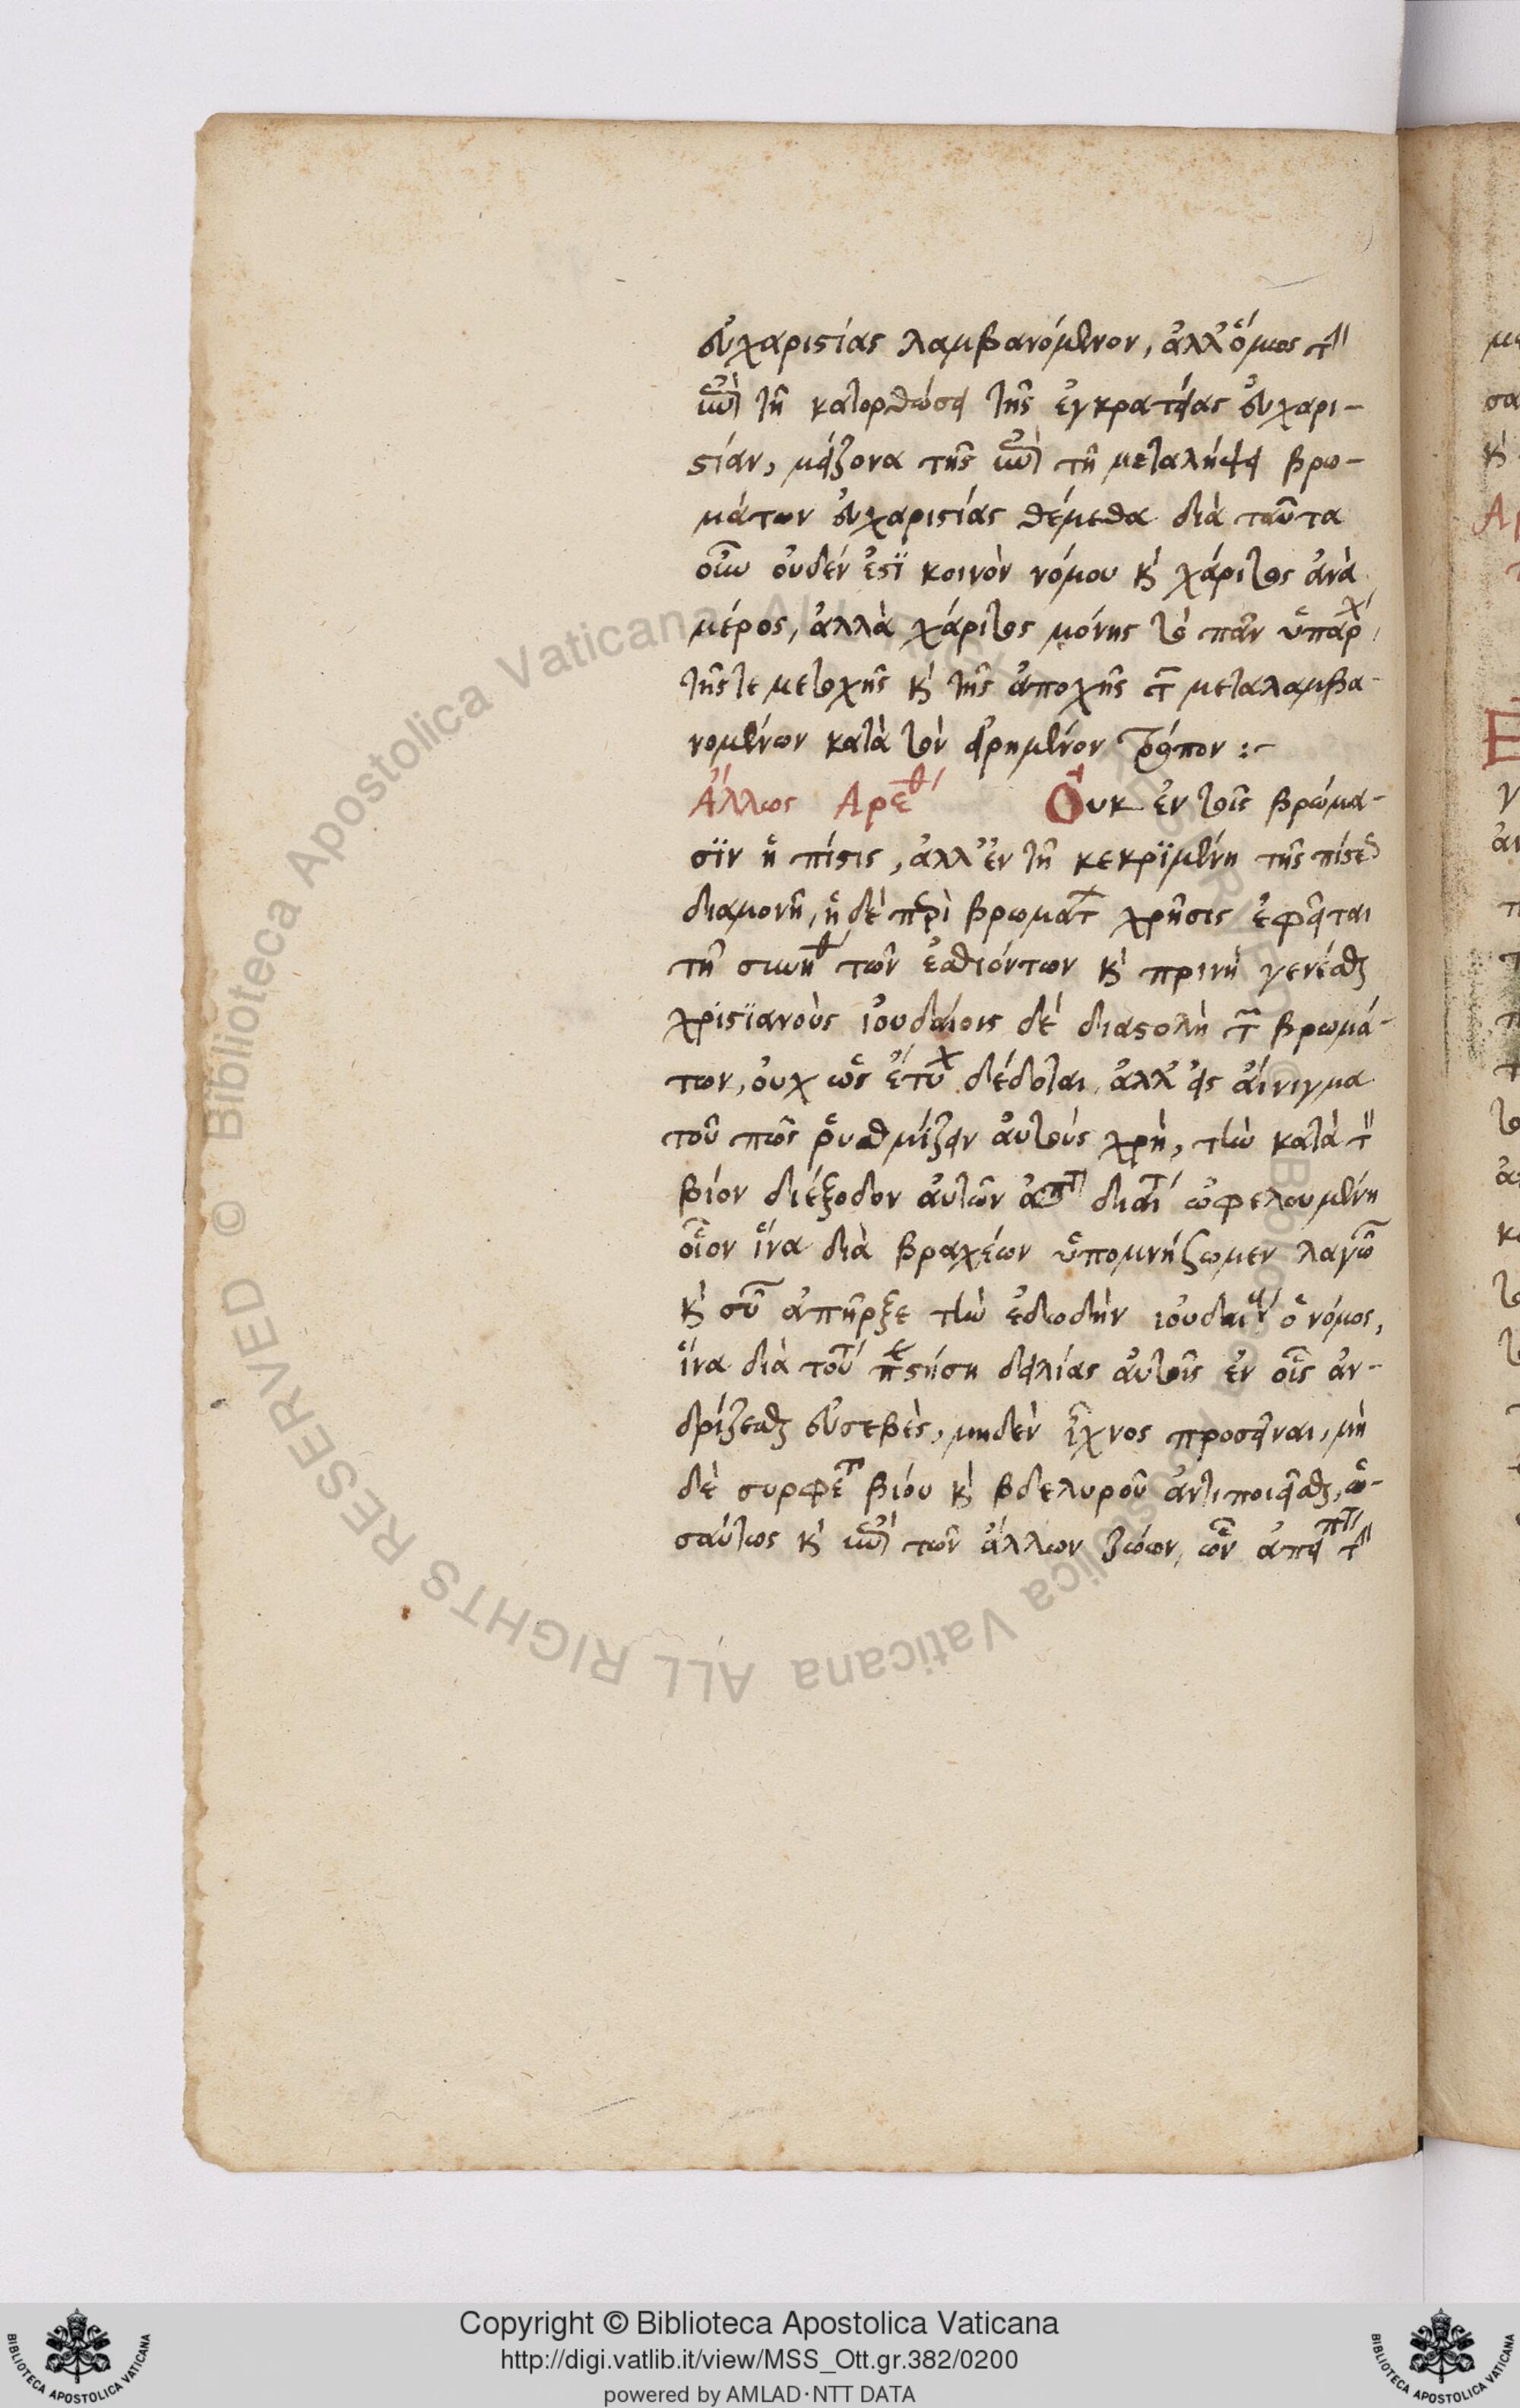 εὐχαριστίας λαμβανόμενον, ἀλλ' ὅμως τὴν
ἐπὶ τῇ κατορθώσει τῆς ἐγκρατείας εὐχαρι-
στίαν, μείζονα τῆς ἐπὶ τῇ μεταλήψει βρω-
μάτων εὐχαριστίας θέμεθα διὰ ταῦτα
οὖν οὐδέν ἐστϊ κοινὸν νόμου κ χάριτος ἀνὰ
μέρος, ἀλλὰ χάριτος μόνης τὸ πᾶν ὑπάρχ
τῆς τε μετοχῆς κ τῆς ἀποχῆς τῶν μεταλαμβα-
νομένων κατὰ τὸν εἰρημένον τρόπον :-
Ἄλλως Ἀρέθ Οὐκ ἐν τοῖς βρώμα-
σϊν ἡ πίστις, ἀλλ' ἐν τῇ κεκρϊμένῃ τῆς πίστεως
διαμονῇ, ἡ δὲ περὶ βρωμάτων χρῆσις ἐφεῖται
τῇ συνηθ τῶν ἐσθιόντων κ πρινὴ γενέσθαι
χρϊστϊανοὺς ἰουδαίοις δὲ διαστολὴ τῶν βρωμά-
των, οὐχ ὡς ἔτυχ δέδοται, ἀλλ' εἰς αἴνιγμα
τοῦ πῶς ῥυθμίζειν αὐτοὺς χρὴ, τὴν κατὰ τὸν
βίον διέξοδον αὐτῶν διαίτ ὠφελουμένη
οἷον ἵνα διὰ βραχέων ὑπομνήσωμεν λαγῶ
κ συ ἀπῆρξε τὴν ἐδωδὴν ἰουδαίων ὁ νόμος,
ἵνα διὰ τούτ παραστήσῃ δειλίας αὐτοῖς ἐν οἷς ἀν-
δρίζεσθαι εὐσεβὲς, μηδὲν ἴχνος προσεῖναι, μὴ
δὲ συρφετ βίου κ βδελυροῦ ἀντιποιεῖσθαι, ὡ-
σαύτως κ ἐπὶ τῶν ἄλλων ζώων, ὧν
Copyright © Biblioteca Apostolica Vaticana
http://digi.vatlib.it/view/MSS_Ott.gr.382/0200
powered by AMLAD·NTT DATA